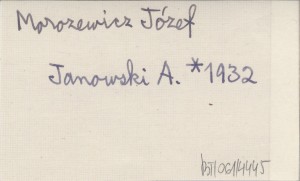 Morozewicz Józef
Janowski A. *1932
BJ/06/4445